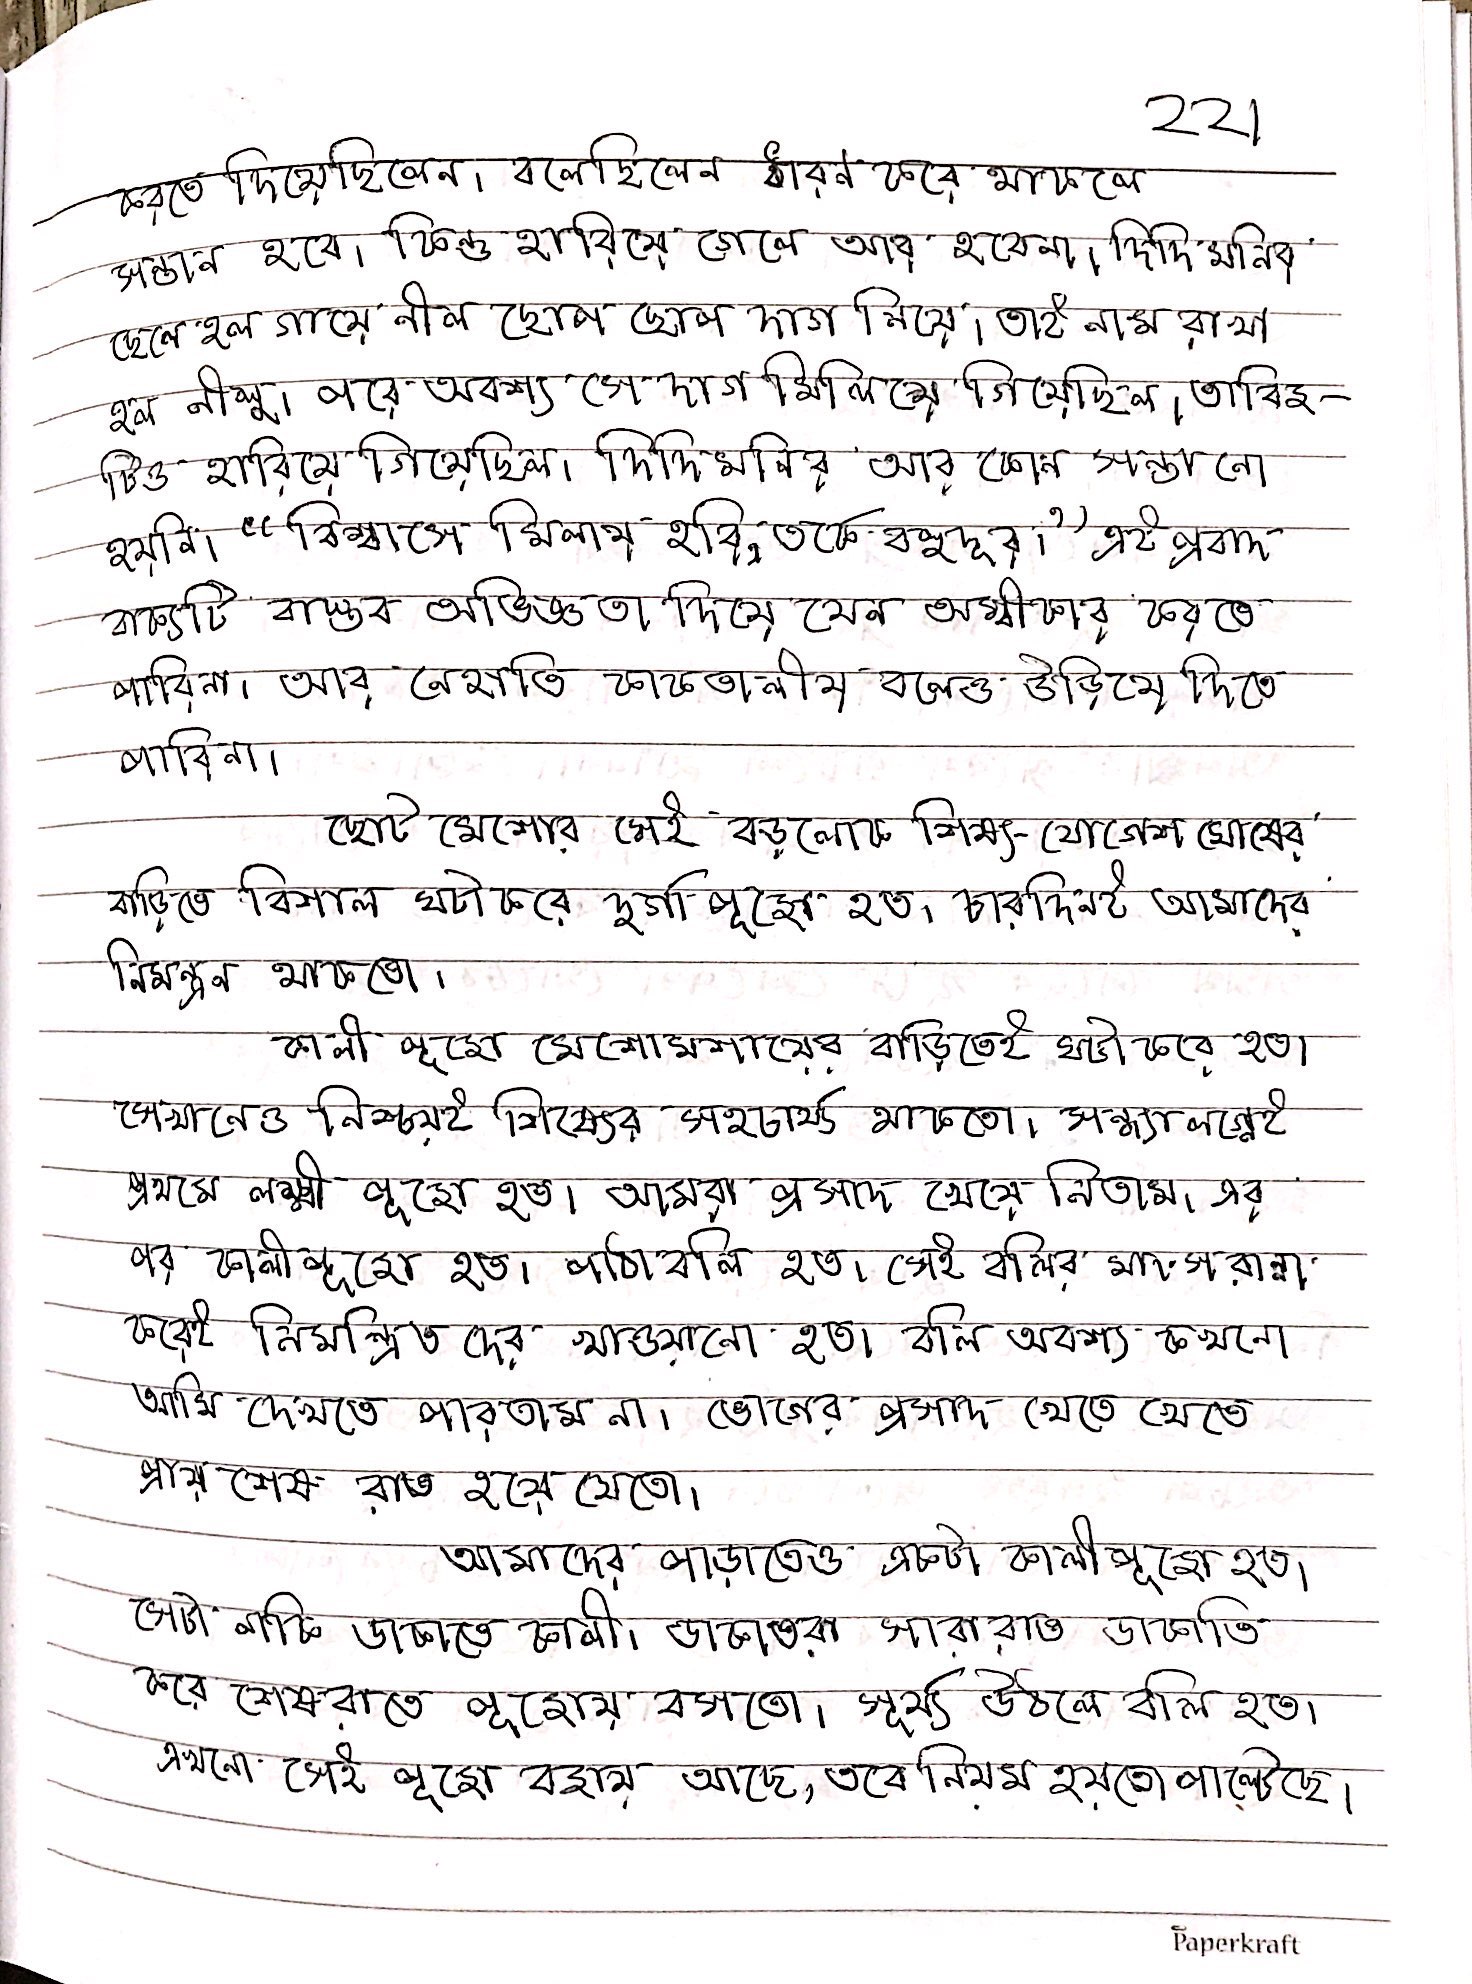 221
করতে দিয়েছিলেন। বলেছিলেন ধারন করে থাকলে
সন্তান হবে। কিন্তু হারিয়ে গেলে আর হবেনা। দিদিমনির
ছেলে হল গায়ে নীল ছোপ ছোপ দাগ নিয়ে। তাই নাম রাখা
হল নীলু। পরে অবশ্য সে দাগ মিলিয়ে গিয়েছিল। তাবিজ-
টিও হারিয়ে গিয়েছিল। দিদিমনির আর কোন সন্তানো
হয়নি। "বিশ্বাসে মিলায় হরি, তর্কে বহুদূর।" এই প্রবাদ
বাক্যটি বাস্তব অভিজ্ঞতা দিয়ে যেন অস্বীকার করতে
পারিনা। আর নেহাতি কাকতালীয় বলেও উড়িয়ে দিতে
পারিনা।
ছোট মেশোর সেই বড়লোক শিষ্য যোগেশ ঘোষের
বাড়িতে বিশাল ঘটা করে দুর্গা পূজো হত। চারদিনই আমাদের
নিমন্ত্রন থাকতো।
কালী পূজো মেশোমশায়ের বাড়িতেই ঘটা করে হত।
সেখানেও নিশ্চয়ই শিষ্যের সহচার্য্য থাকতো। সন্ধ্যালগ্নেই
প্রথমে লক্ষ্মী পূজো হত। আমরা প্রসাদ খেয়ে নিতাম। এর
পর কালীপূজো হত। পাঠাবলি হত। সেই বলির মাংস রান্না
করেই নিমন্ত্রিতদের খাওয়ানো হত। বলি অবশ্য কখনো
আমি দেখতে পারতাম না। ভোগের প্রসাদ খেতে খেতে
প্রায় শেষ রাত হয়ে যেতো।
আমাদের পাড়াতেও একটা কালীপূজো হত।
সেটা নাকি ডাকাতে কালী। ডাকাতরা সারারাত ডাকাতি
করে শেষরাতে পূজোয় বসতো। সূর্য্য উঠলে বলি হত।
এখনো সেই পূজো বজায় আছে, তবে নিয়ম হয়তো পাল্টেছে।
Paperkraft